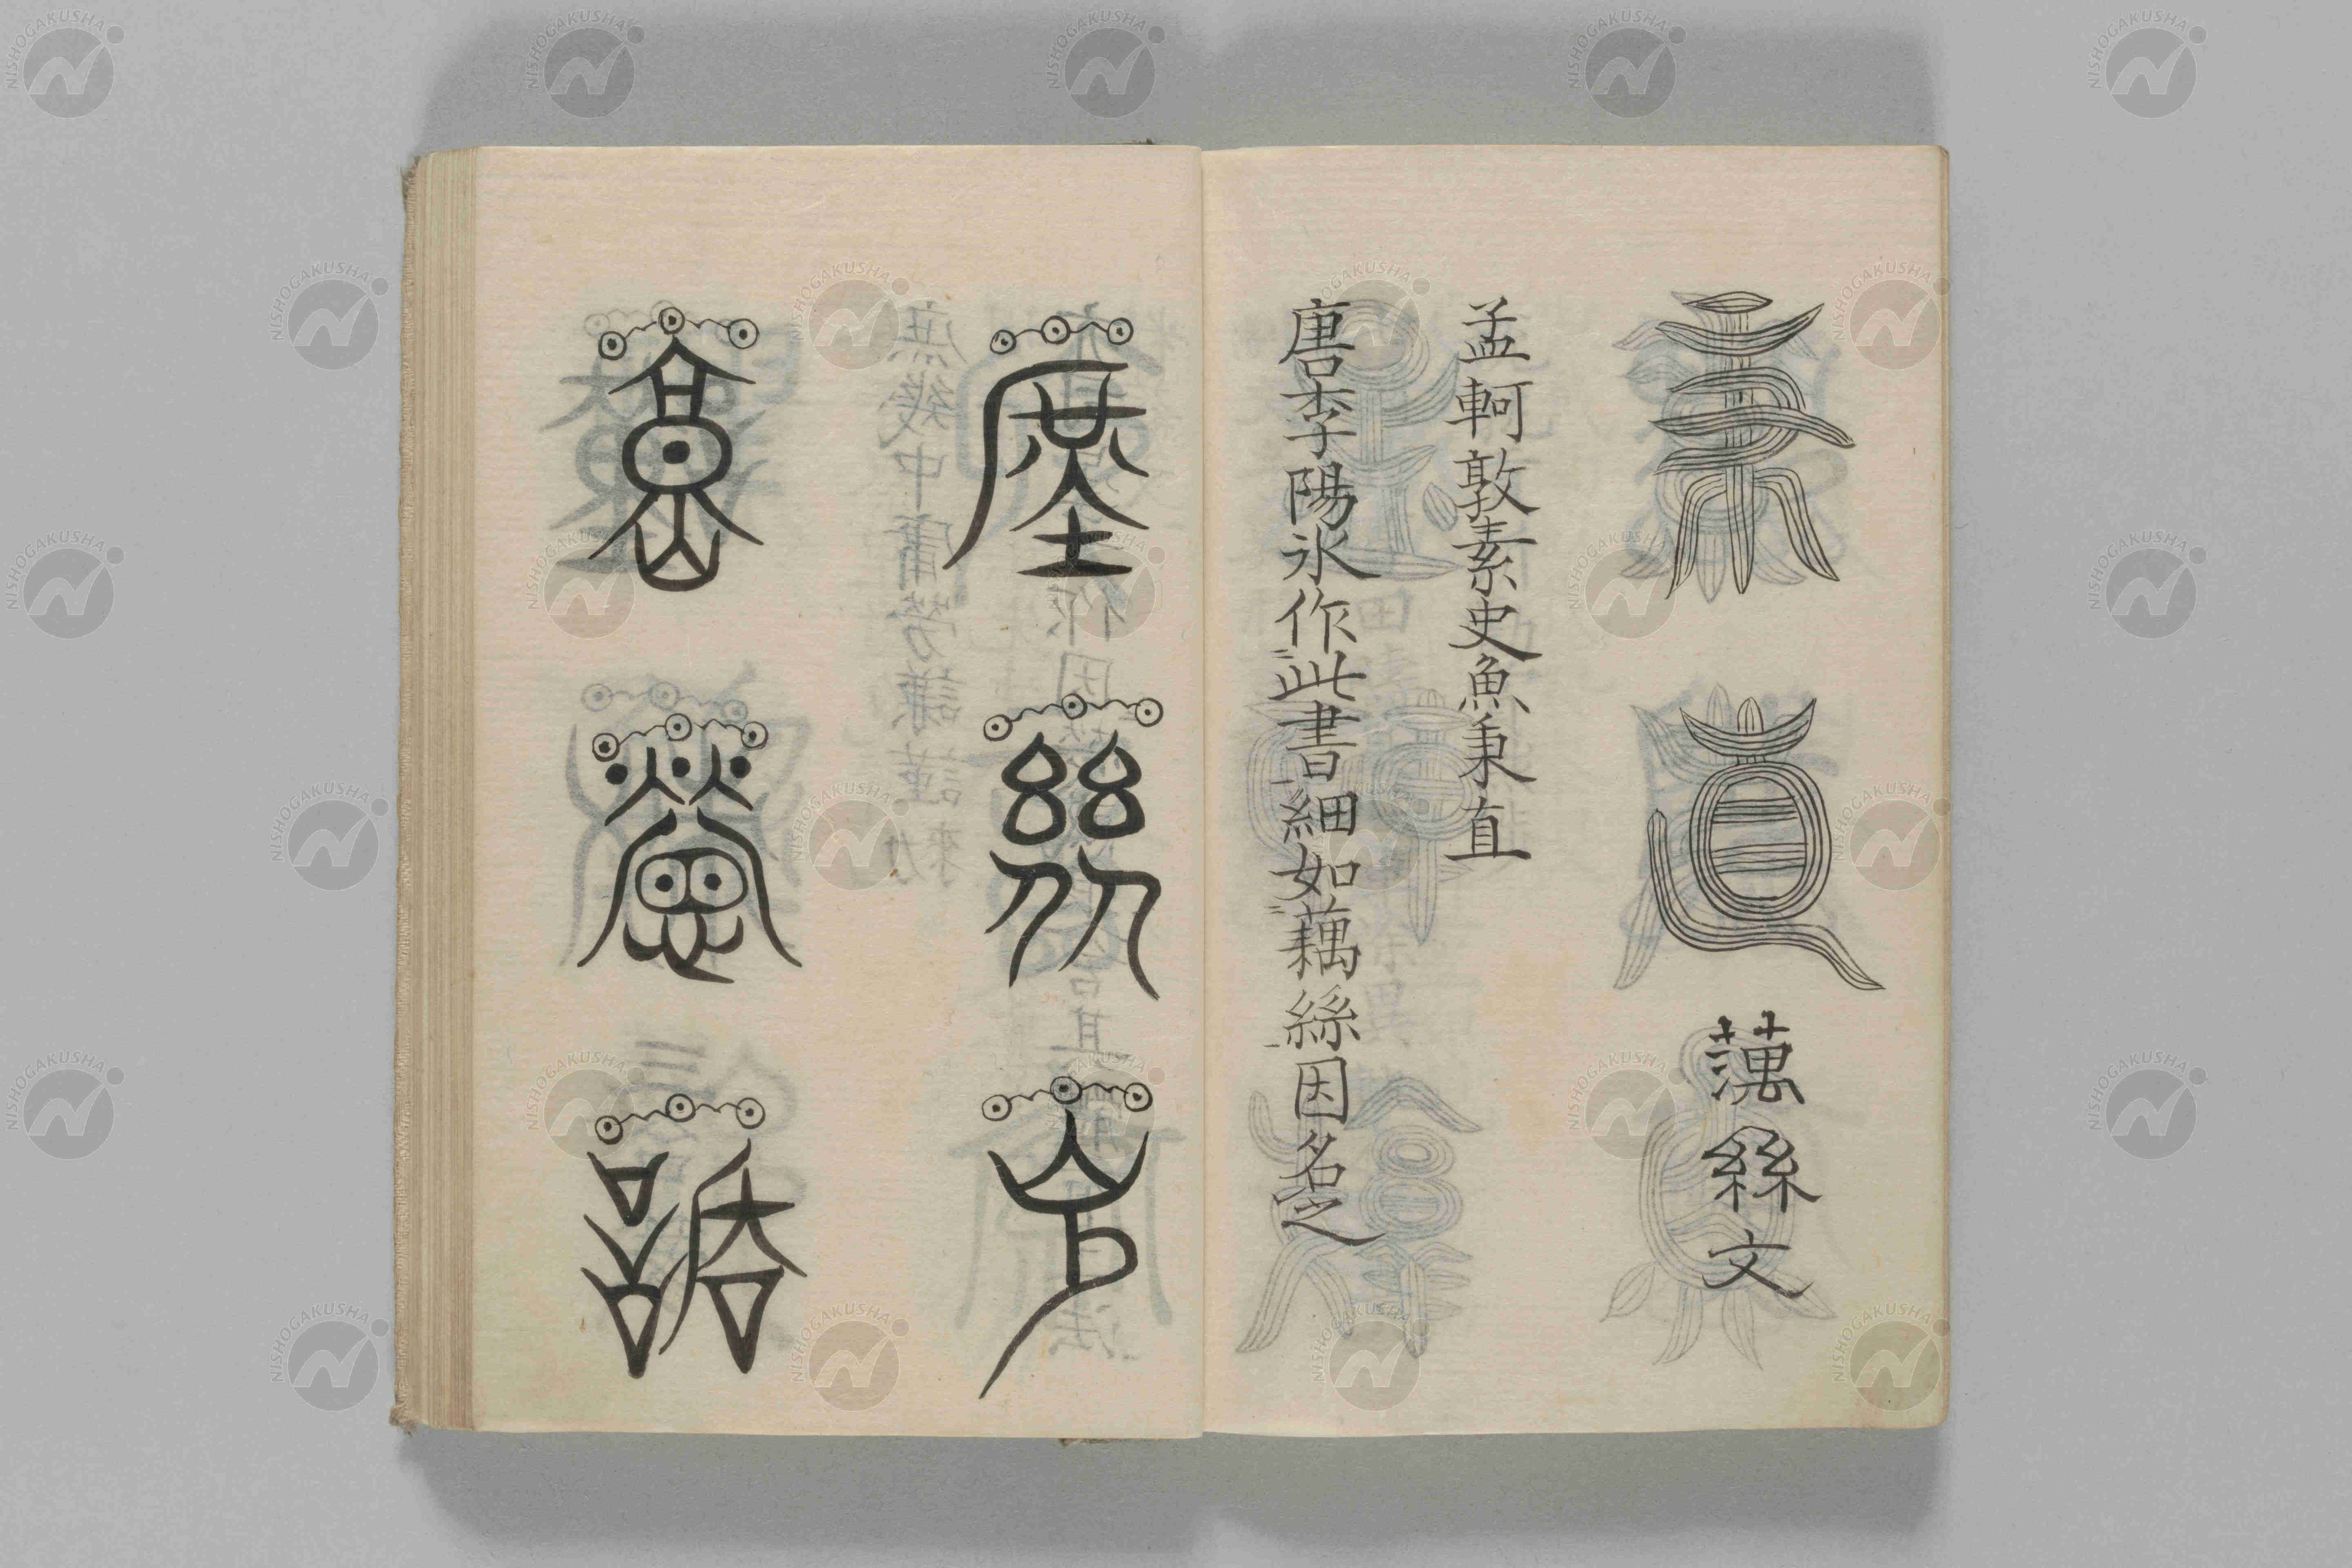 秉直
蕅絲文
孟軻敦素史魚秉直
唐李陽氷作此書細如藕絲因名之
庶幾中
庸勞謙
NISHOGAKUSHA